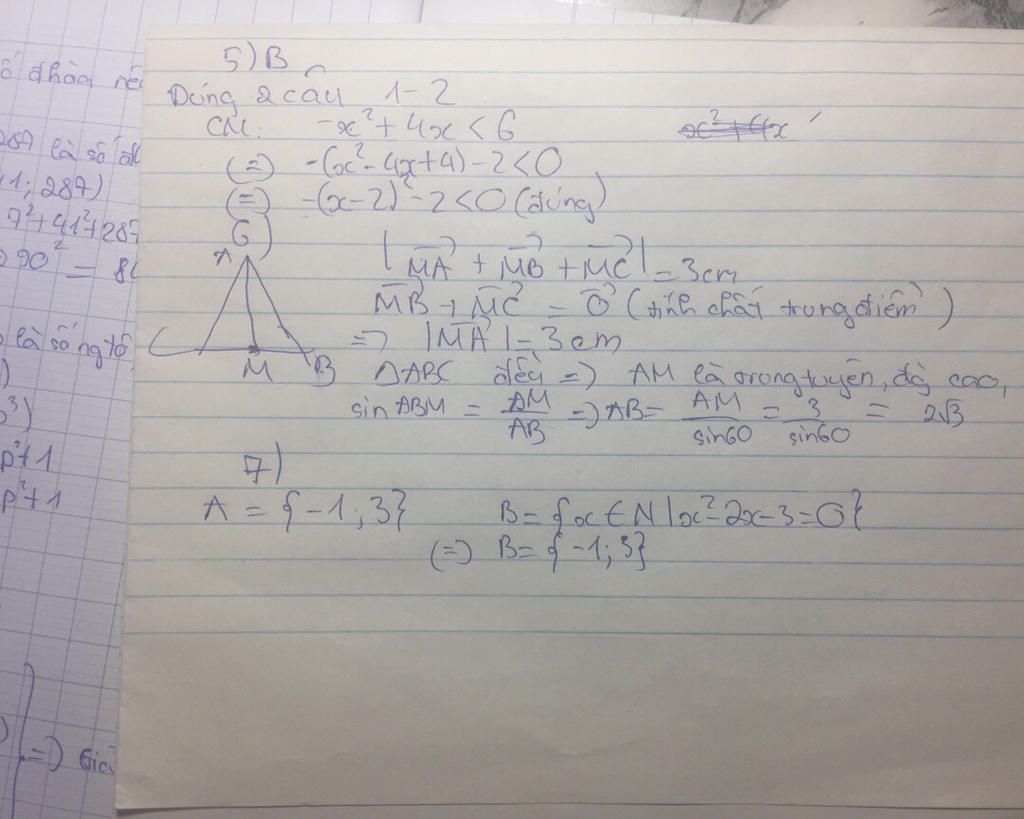 ố đhào nế
287 là số
1; 287)
7²+41²+287
290² = 84
là số ng tố
)
p³)
p²+1
p²+1
=) Giả
5) B
Đúng 2 câu 1-2
CM: -x²+4x<6
x²+4x
(=) -(x²-4x+4)-2<0
(=) -(x-2)²-2<0 (đúng)
6)
A
|MA + MB + MC| = 3cm
MB + MC = 0 (tính chất trung điểm)
=> |MA| = 3cm
C M B
△ABC đều => AM là trong tuyến, đg cao,
sin ABM = AM/AB => AB = AM/sin60 = 3/sin60 = 2√3
7)
A = {-1; 3} B = {x ∈ N | x²-2x-3=0}
(=) B = {-1; 3}